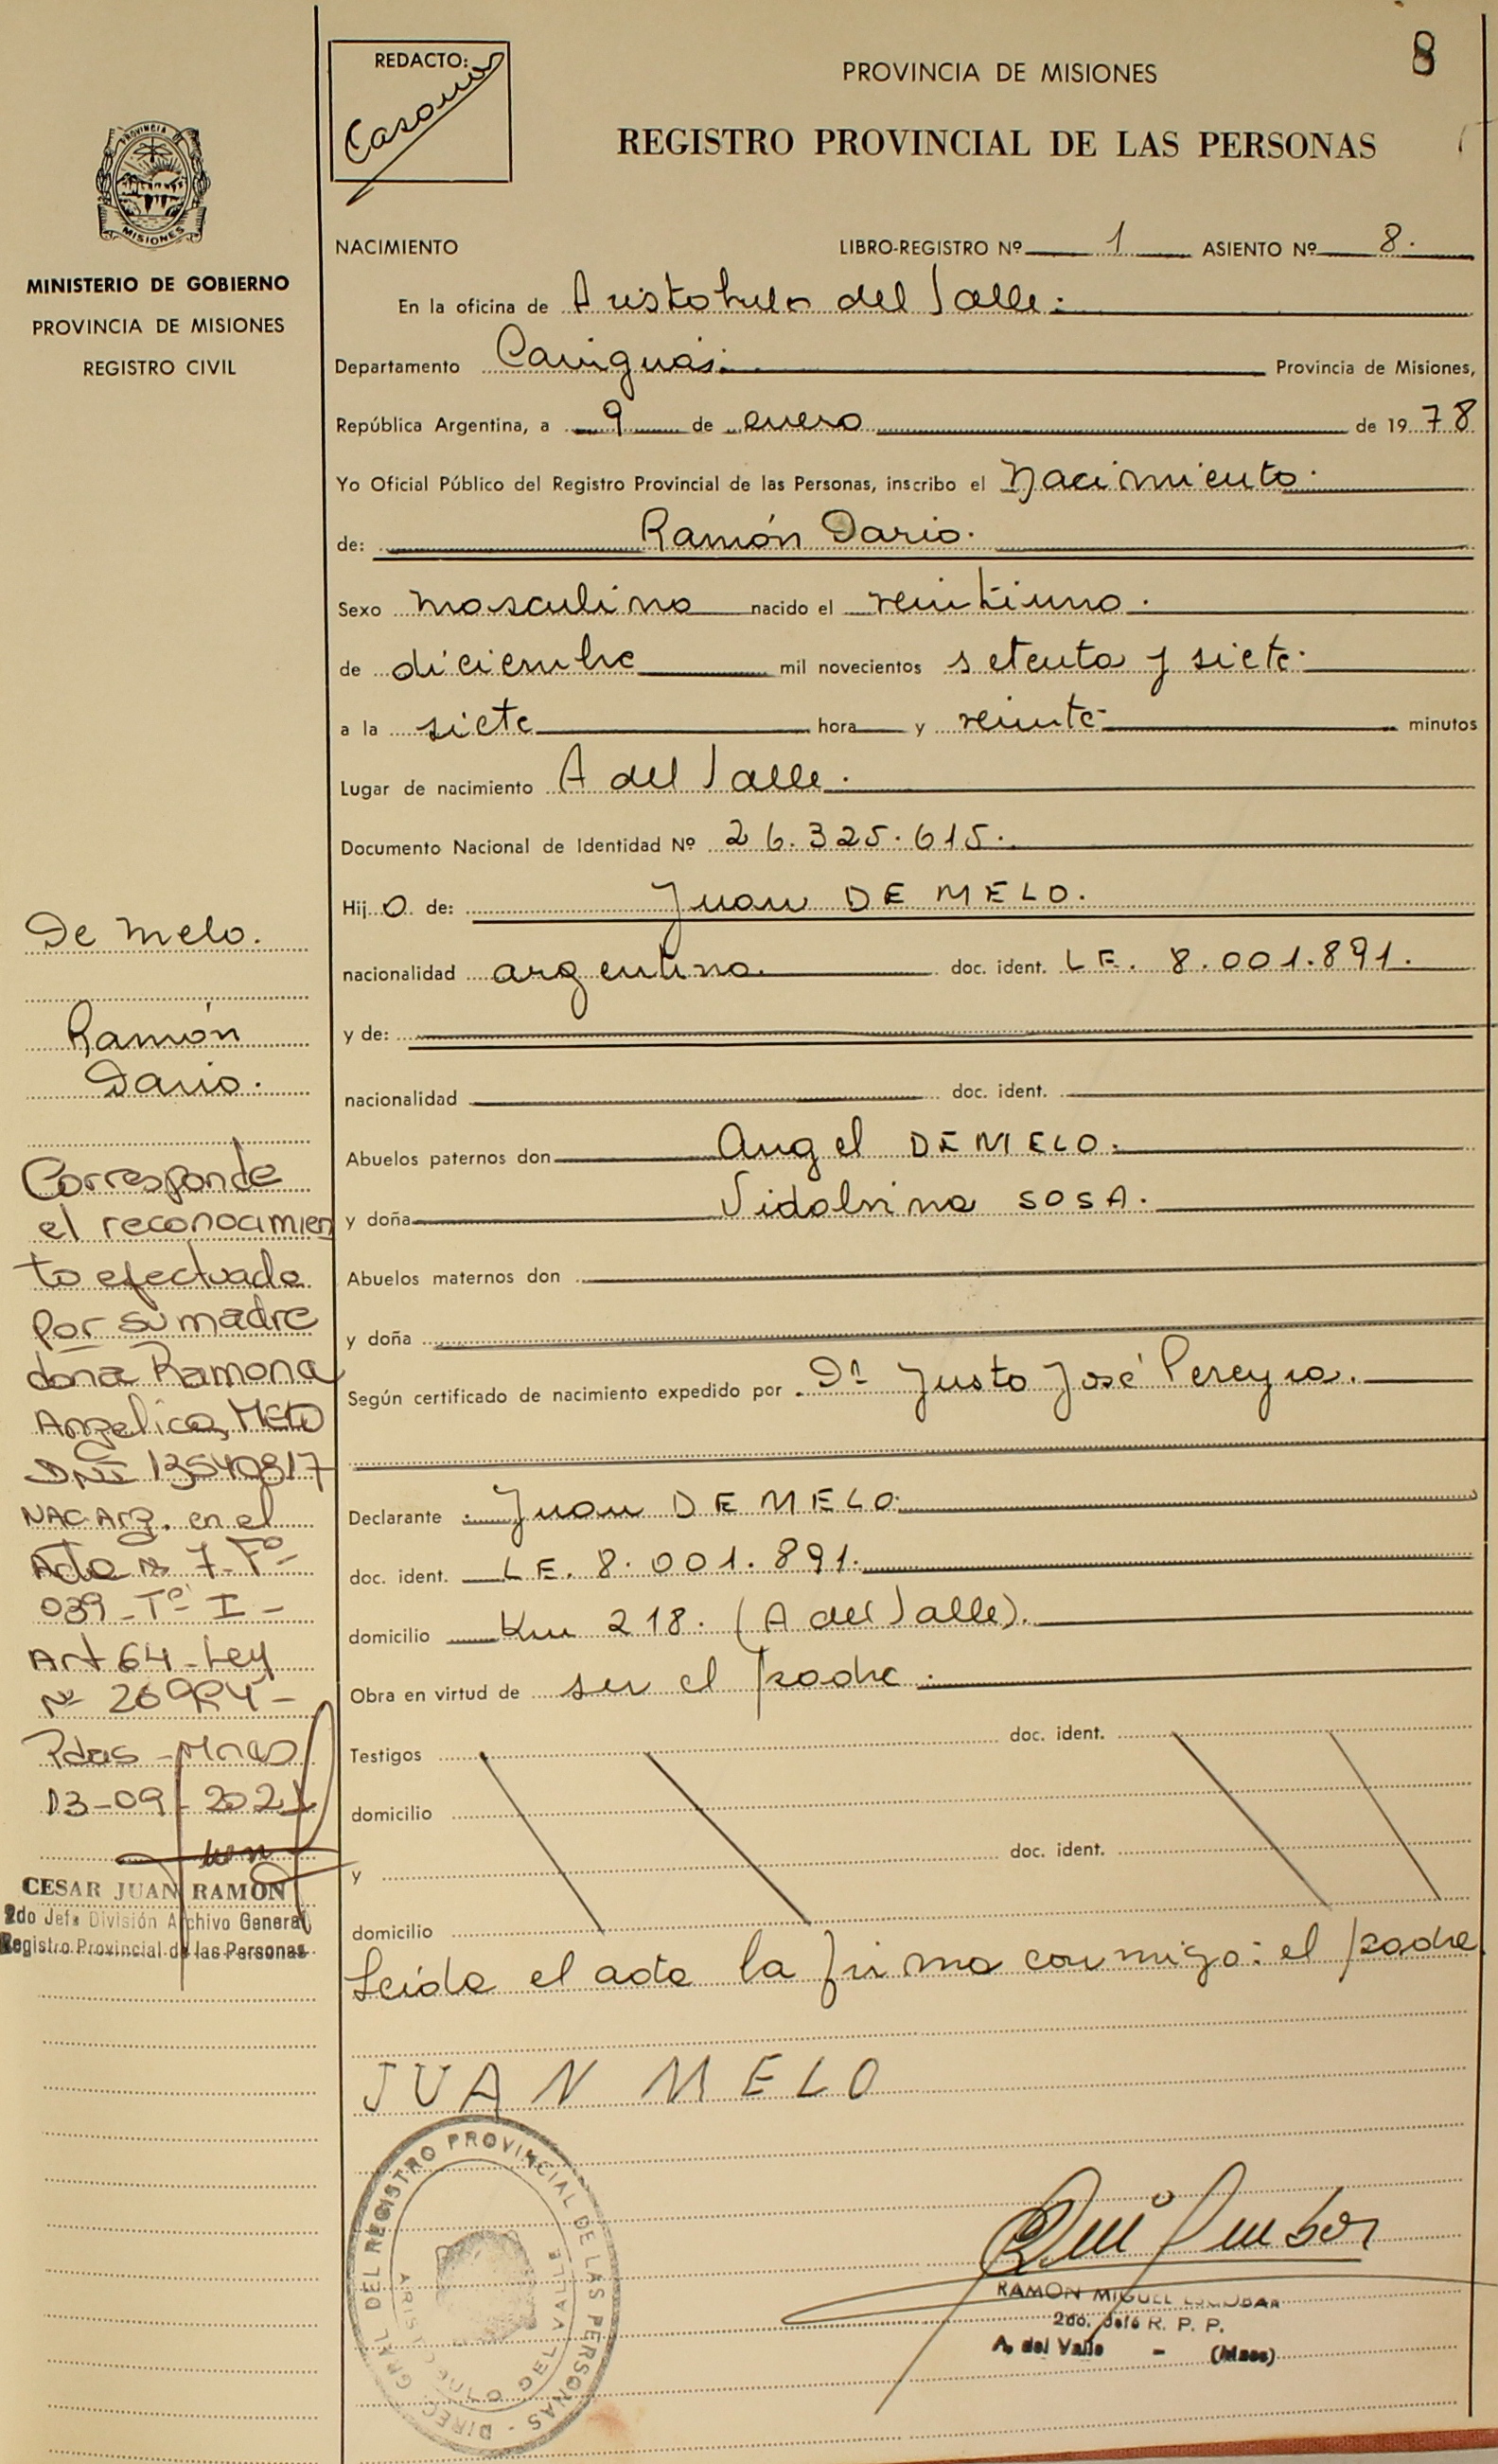 8
REDACTO:
PROVINCIA DE MISIONES
REGISTRO PROVINCIAL DE LAS PERSONAS
PROVINCIA DE
MISIONES
MINISTERIO DE GOBIERNO
PROVINCIA DE MISIONES
REGISTRO CIVIL
NACIMIENTO LIBRO-REGISTRO Nº 1 ASIENTO Nº 8.
En la oficina de Aristobulo del Valle.
Departamento Cainguás. Provincia de Misiones,
República Argentina, a 9 de enero de 19 78
Yo Oficial Público del Registro Provincial de las Personas, inscribo el Nacimiento.
de: Ramón Dario.
Sexo masculino nacido el veintiuno.
de diciembre mil novecientos setenta y siete.
a la siete hora y veinte minutos
Lugar de nacimiento A del Valle.
Documento Nacional de Identidad Nº 26.325.615.
Hij o de: Juan DE MELO.
nacionalidad argentina. doc. ident. LE. 8.001.891.
y de:
nacionalidad doc. ident.
Abuelos paternos don Angel DE MELO.
y doña Vidalvina SOSA.
Abuelos maternos don
y doña
Según certificado de nacimiento expedido por Dr Justo José Pereyra.
Declarante Juan DE MELO.
doc. ident. LE. 8.001.891.
domicilio Km 218. (A del Valle).
Obra en virtud de ser el padre.
Testigos doc. ident.
domicilio
y doc. ident.
domicilio
Leída el acta la firma conmigo: el padre
JUAN MELO
De Melo.
Ramón
Dario.
Corresponde
el reconocimien
to efectuado
por su madre
doña Ramona
Angelica, Melo
DNI 13540817
NAC Arg. en el
Acta nº 7-Fº-
039-Tº I-
Art 64-Ley
Nº 26994-
Pdas-Mnes
13-09-2021
CESAR JUAN RAMON
2do Jefe División Archivo General
Registro Provincial de las Personas
DIREC. GRAL. DEL REGISTRO PROVINCIAL DE LAS PERSONAS
ARISTOBULO DEL VALLE
RAMON MIGUEL ESCOBAR
2do. Jefe R. P. P.
A. del Valle - (Mnes)